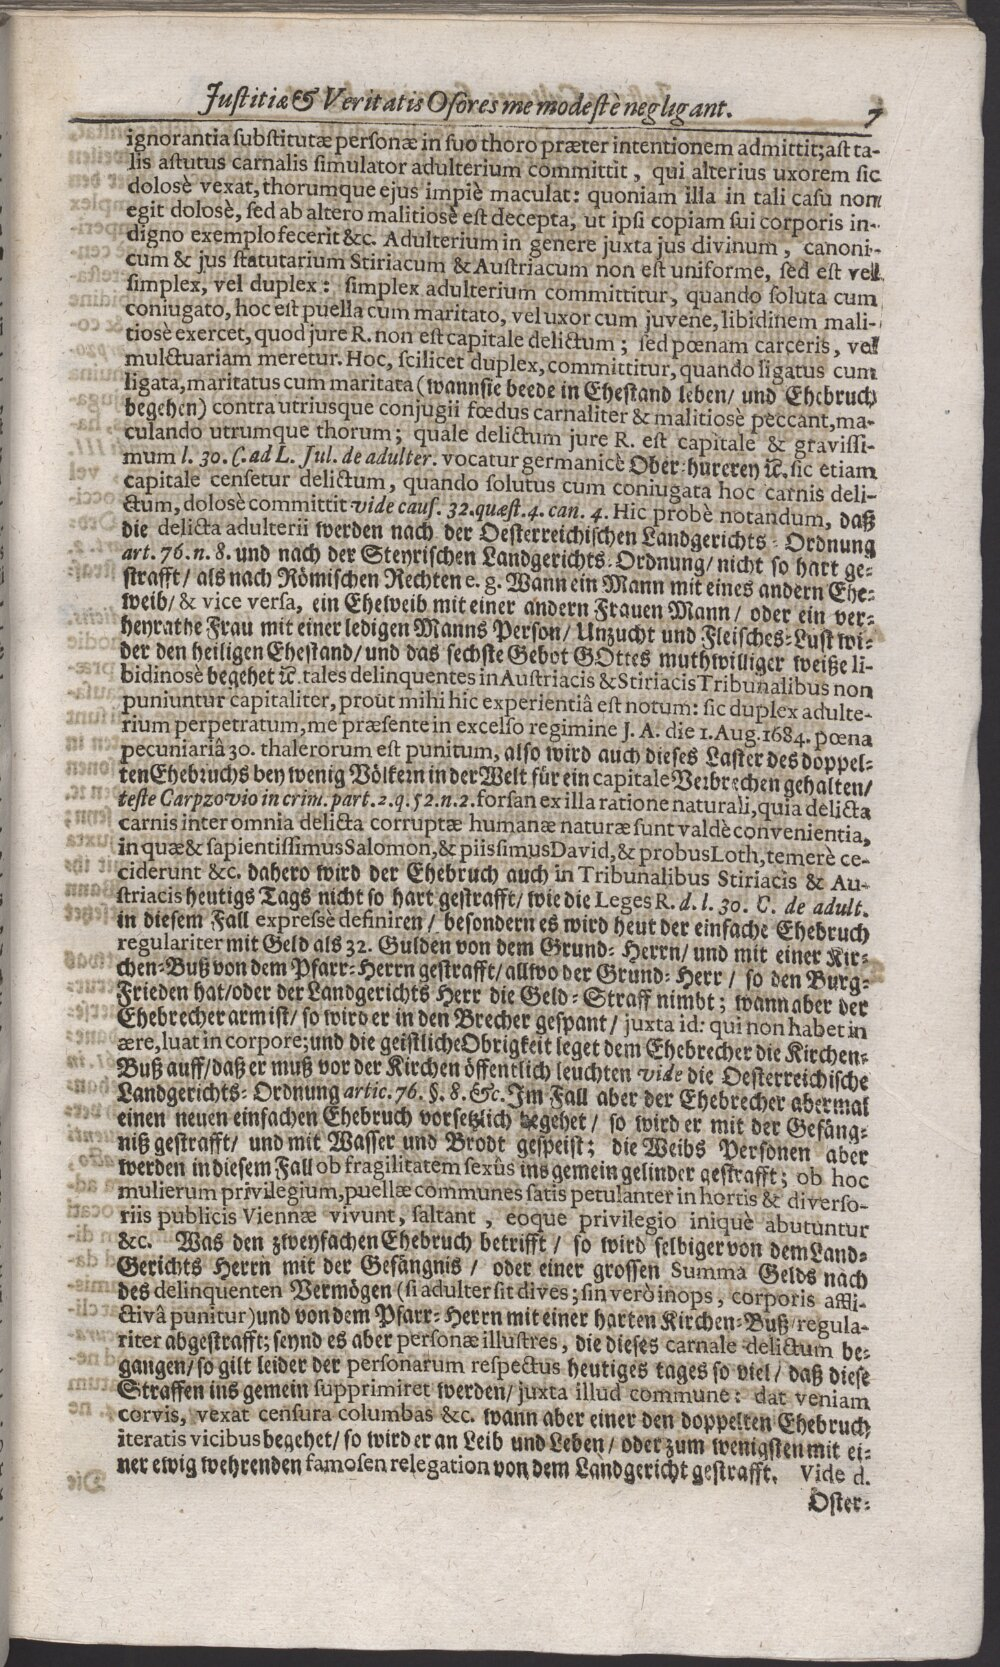 Justitiæ & Veritatis Osores me modestè negligant. 7
ignorantia substitutæ personæ in suo thoro præter intentionem admittit; ast ta-
lis astutus carnalis simulator adulterium committit, qui alterius uxorem sic
dolosè vexat, thorumque ejus impiè maculat: quoniam illa in tali casu non
egit dolosè, sed ab altero malitiosè est decepta, ut ipsi copiam sui corporis in-
digno exemplo fecerit &c. Adulterium in genere juxta jus divinum, canoni-
cum & jus statutarium Stiriacum & Austriacum non est uniforme, sed est vel
simplex, vel duplex: simplex adulterium committitur, quando soluta cum
coniugato, hoc est puella cum maritato, vel uxor cum juvene, libidinem mali-
tiosè exercet, quod jure R. non est capitale delictum; sed pœnam carceris, vel
mulctuariam meretur. Hoc, scilicet duplex, committitur, quando ligatus cum
ligata, maritatus cum maritata (wann sie beede in Ehestand leben/ und Ehebruch
begehen) contra utriusque conjugii fœdus carnaliter & malitiosè peccant, ma-
culando utrumque thorum; quale delictum jure R. est capitale & gravissi-
mum l. 30. C. ad L. Jul. de adulter. vocatur germanicè Ober-hurerey ꝛc. sic etiam
capitale censetur delictum, quando solutus cum coniugata hoc carnis deli-
ctum, dolosè committit vide caus. 32. quæst. 4. can. 4. Hic probè notandum, daß
die delicta adulterii werden nach der Oesterreichischen Landgerichts-Ordnung
art. 76. n. 8. und nach der Steyrischen Landgerichts-Ordnung/ nicht so hart ge-
strafft/ als nach Römischen Rechten e. g. Wann ein Mann mit eines andern Ehe-
weib/ & vice versa, ein Eheweib mit einer andern Frauen Mann/ oder ein ver-
heyrathe Frau mit einer ledigen Manns Person/ Unzucht und Fleisches-Lust wi-
der den heiligen Ehestand/ und das sechste Gebot GOttes muthwilliger weiße li-
bidinosè begehet ꝛc. tales delinquentes in Austriacis & Stiriacis Tribunalibus non
puniuntur capitaliter, prout mihi hic experientiâ est notum: sic duplex adulte-
rium perpetratum, me præsente in excelso regimine J. A. die 1. Aug. 1684. pœna
pecuniariâ 30. thalerorum est punitum, also wird auch dieses Laster des doppel-
ten Ehebruchs bey wenig Völkern in der Welt für ein capitale Verbrechen gehalten/
teste Carpzovio in crim. part. 2. q. 52. n. 2. forsan ex illa ratione naturali, quia delicta
carnis inter omnia delicta corruptæ humanæ naturæ sunt valdè convenientia,
in quæ & sapientissimus Salomon, & piissimus David, & probus Loth, temerè ce-
ciderunt &c. dahero wird der Ehebruch auch in Tribunalibus Stiriacis & Au-
striacis heutigs Tags nicht so hart gestrafft/ wie die Leges R. d. l. 30. C. de adult.
in diesem Fall expressè definiren/ besondern es wird heut der einfache Ehebruch
regulariter mit Geld als 32. Gulden von dem Grund-Herrn/ und mit einer Kir-
chen-Buß von dem Pfarr-Herrn gestrafft/ allwo der Grund-Herr/ so den Burg-
Frieden hat/ oder der Landgerichts Herr die Geld-Straff nimbt; wann aber der
Ehebrecher arm ist/ so wird er in den Brecher gespant/ juxta id: qui non habet in
ære, luat in corpore; und die geistliche Obrigkeit leget dem Ehebrecher die Kirchen-
Buß auff/ daß er muß vor der Kirchen öffentlich leuchten vide die Oesterreichische
Landgerichts-Ordnung artic. 76. §. 8. &c. Im Fall aber der Ehebrecher abermal
einen neuen einfachen Ehebruch vorsetzlich begehet/ so wird er mit der Gefäng-
niß gestrafft/ und mit Wasser und Brodt gespeist; die Weibs Personen aber
werden in diesem Fall ob fragilitatem sexûs ins gemein gelinder gestrafft; ob hoc
mulierum privilegium, puellæ communes satis petulanter in hortis & diverso-
riis publicis Viennæ vivunt, saltant, eoque privilegio iniquè abutuntur
&c. Was den zweyfachen Ehebruch betrifft/ so wird selbiger von dem Land-
Gerichts Herrn mit der Gefängnis/ oder einer grossen Summa Gelds nach
des delinquenten Vermögen (si adulter sit dives; sin verò inops, corporis affli-
ctivâ punitur) und von dem Pfarr-Herrn mit einer harten Kirchen-Buß/ regula-
riter abgestrafft; seynd es aber personæ illustres, die dieses carnale delictum be-
gangen/ so gilt leider der personarum respectus heutiges tages so viel/ daß diese
Straffen ins gemein supprimiret werden/ juxta illud commune: dat veniam
corvis, vexat censura columbas &c. wann aber einer den doppelten Ehebruch
iteratis vicibus begehet/ so wird er an Leib und Leben/ oder zum wenigsten mit ei-
ner ewig wehrenden famosen relegation von dem Landgericht gestrafft. Vide d.
Oster-